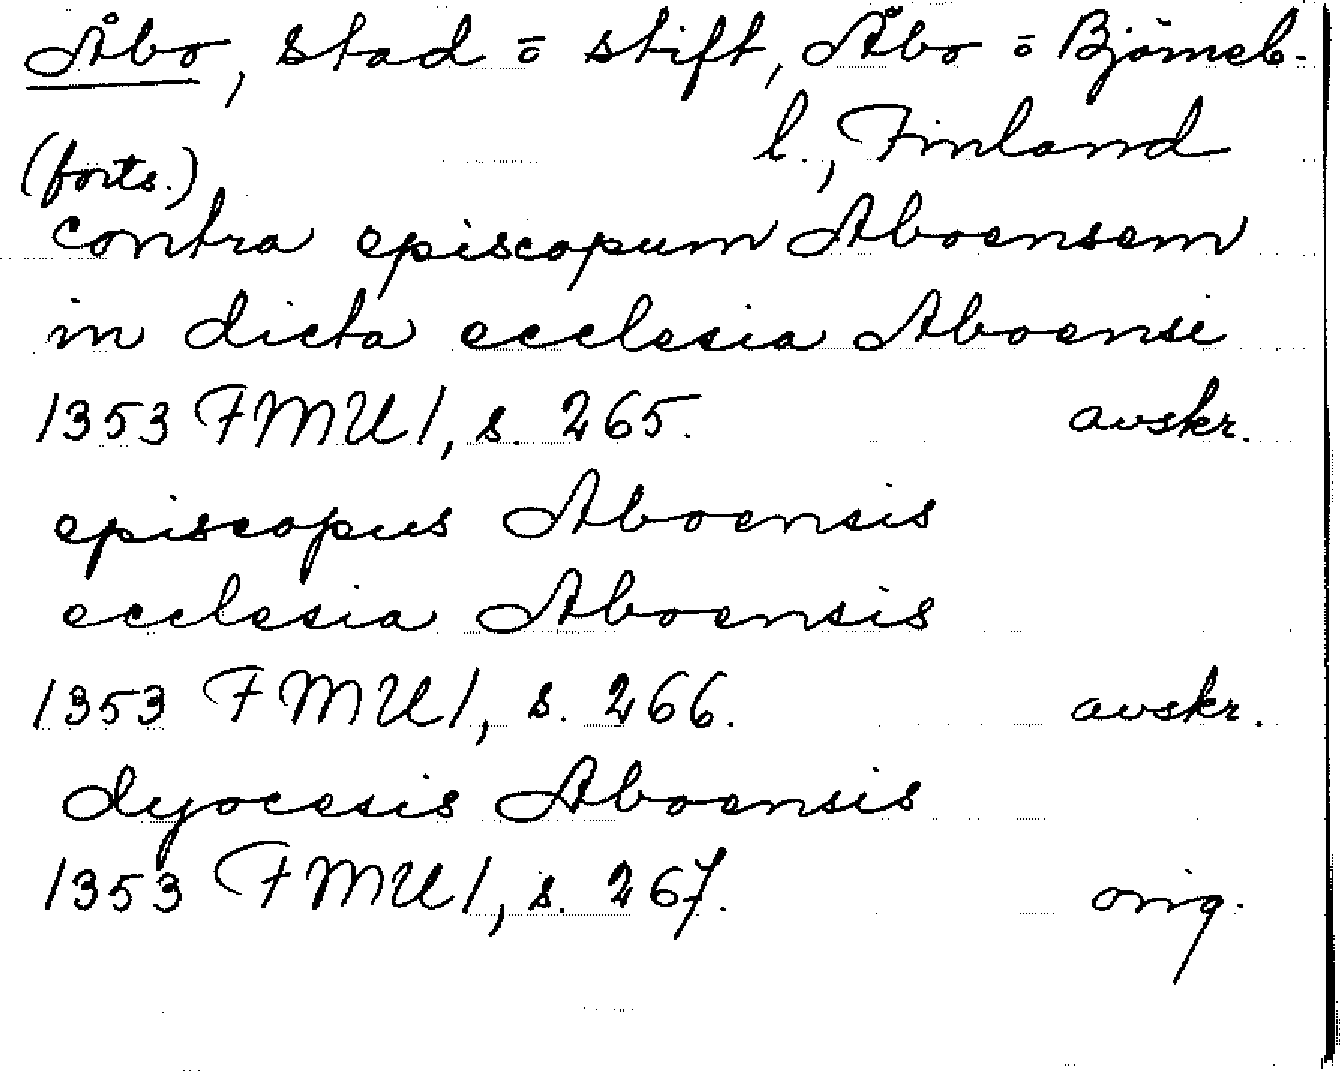 Åbo, stad o stift, Åbo o Björneb.
l., Finland
(forts.)
contra episcopum Aboensem
in dicta ecclesia Aboensi
1353 FMU 1, s. 265. avskr.
episcopus Aboensis
ecclesia Aboensis
1353 FMU 1, s. 266. avskr.
dyocesis Aboensis
1353 FMU 1, s. 267. orig.